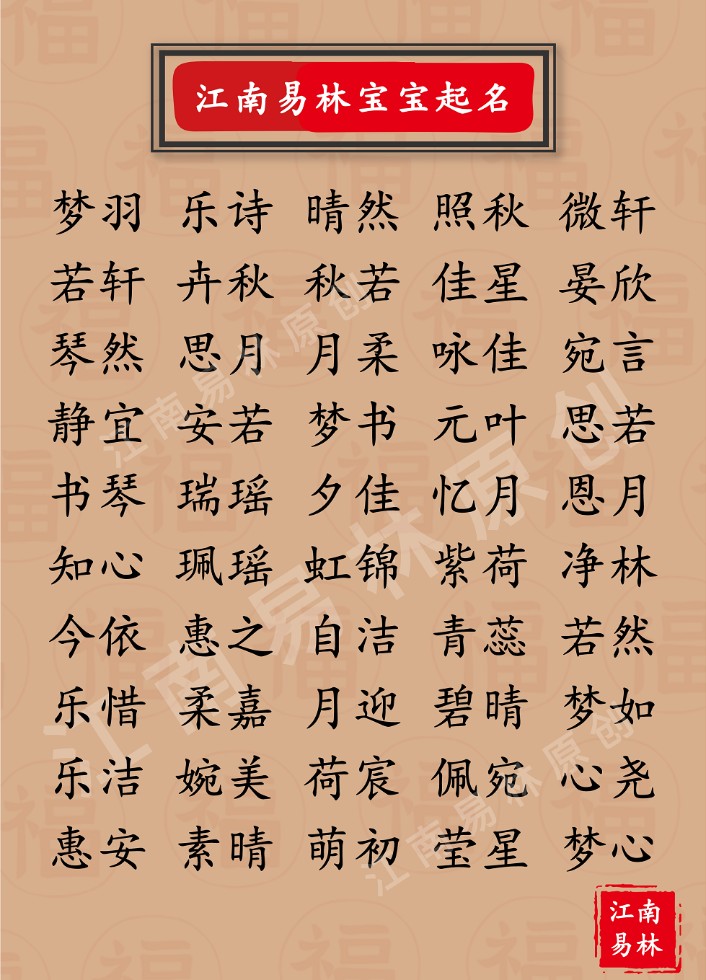 江南易林宝宝起名
梦羽 乐诗 晴然 照秋 微轩
若轩 卉秋 秋若 佳星 晏欣
琴然 思月 月柔 咏佳 宛言
静宜 安若 梦书 元叶 思若
书琴 瑞瑶 夕佳 忆月 恩月
知心 珮瑶 虹锦 紫荷 净林
今依 惠之 自洁 青蕊 若然
乐惜 柔嘉 月迎 碧晴 梦如
乐洁 婉美 荷宸 佩宛 心尧
惠安 素晴 萌初 莹星 梦心
江南易林原创
江南易林原创
江南易林原创
江南
易林